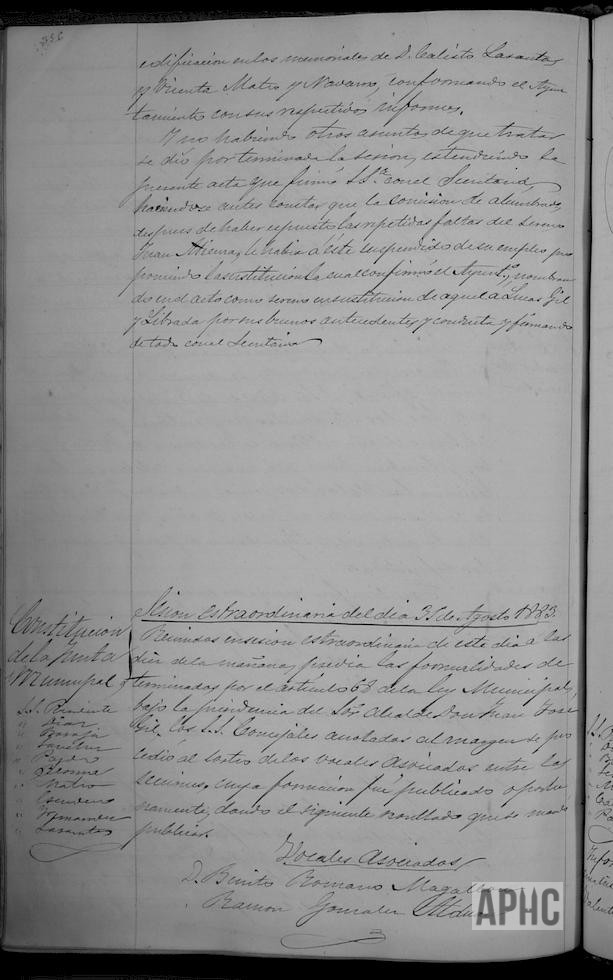 edificacion en los memoriales de D. Calisto Lasanta
y Vicenta Mateo y Navarro, conformando el Ayun
tamiento con sus respectivos informes.
Y no habiendo otros asuntos de que tratar
se dio por terminada la sesion, estendiendo la
presente acta que firmó S.Sª con el Secretario
haciendose antes constar que la Comision de alumbrado,
despues de haber espuesto las repetidas faltas del Sereno
Juan le habia á éste suspendido de su empleo pro
poniendo la sustitución la cual confirmó el Ayuntº, nombran
do en el acto como sereno en sustitucion de aquel a Lucas Gil
y Librada por sus buenos antecedentes y conducta y firmando
de todo con el Secretario
Sesion estraordinaria del dia 31 de Agosto 1883.
Constitucion
de la Junta
Municipal
S.S. Presidente
" Diaz
" Barajas
" Sanchez
"
"
" Mateo
"
" Fernandez
" Lasanta
Reunidos en sesion estraordinaria de este dia a las
diez de la mañana, previa las formalidades de
terminadas por el artículo 68 de la ley Municipal,
bajo la presidencia del Sor. Alcalde Don Juan Jose
Gil, los S.S. Concejales anotados al margen se pro
cedió al sorteo de los vocales asociados entre las
secciones, cuya formacion fué publicado oportu
namente, dando el siguiente resultado que se mandó
publicar.
Vocales Asociados
D. Benito Romano Magallon
" Ramon Gonzalez
APHC